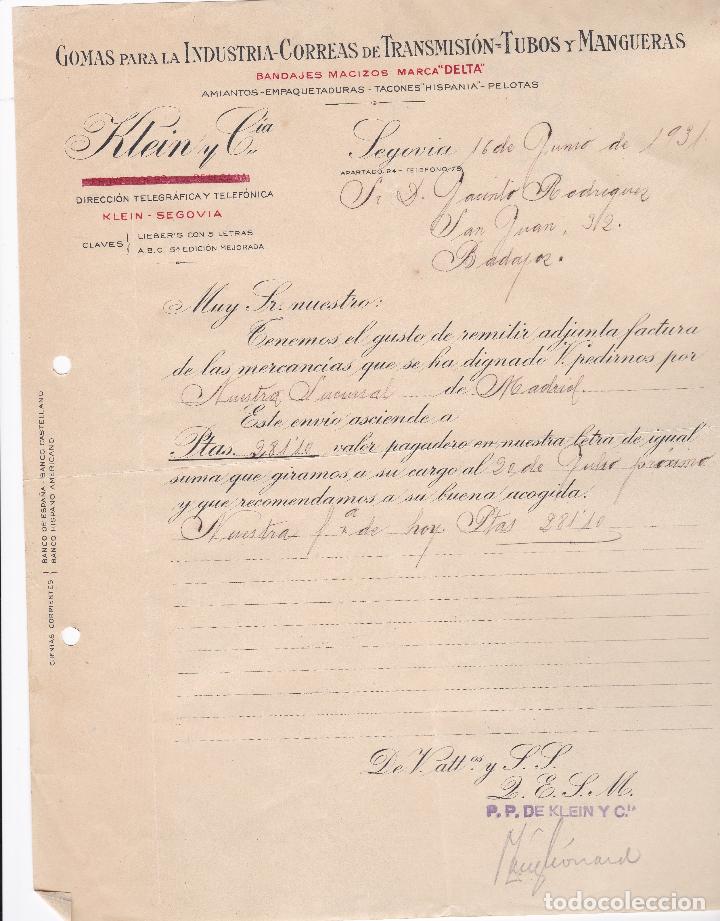 GOMAS PARA LA INDUSTRIA-CORREAS DE TRANSMISIÓN-TUBOS Y MANGUERAS
BANDAJES MACIZOS MARCA "DELTA"
AMIANTOS-EMPAQUETADURAS-TACONES "HISPANIA"-PELOTAS
Klein y Cía
DIRECCIÓN TELEGRÁFICA Y TELEFÓNICA
KLEIN-SEGOVIA
CLAVES
LIEBER'S CON 5 LETRAS
A.B.C. 5ª EDICIÓN MEJORADA
Segovia 16 de Junio de 1931
APARTADO, 24-TELÉFONO, 75
Sr. D. Jacinto Rodriguez
San Juan, 32
Badajoz.
Muy Sr. nuestro:
Tenemos el gusto de remitir adjunta factura
de las mercancías que se ha dignado V. pedirnos por
Nuestra Sucursal de Madrid
Este envío asciende a
Ptas. 281'10 valor pagadero en nuestra letra de igual
suma que giramos a su cargo al 20 de Julio próximo
y que recomendamos a su buena acogida.
Nuestra fra de hoy Ptas 281'10
CUENTAS CORRIENTES
BANCO DE ESPAÑA-BANCO CASTELLANO
BANCO HISPANO AMERICANO
De V. att.os y S.S.
Q.E.S.M.
P.P. DE KLEIN Y C.ía
todocoleccion